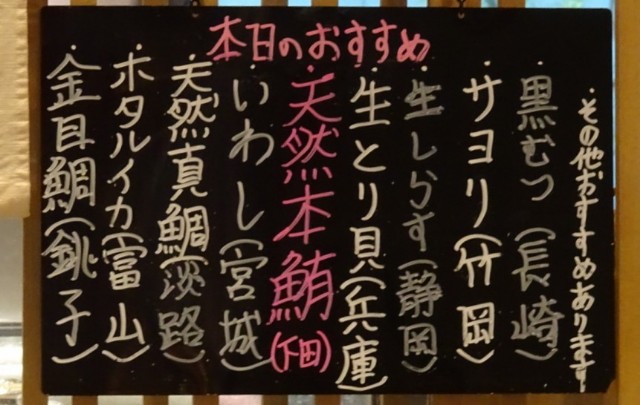 本日のおすすめ
・その他おすすめあります
・黒むつ(長崎)
・サヨリ(竹岡)
・生しらす(静岡)
・生とり貝(兵庫)
・天然本鮪(下田)
・いわし(宮城)
・天然真鯛(淡路)
・ホタルイカ(富山)
・金目鯛(銚子)